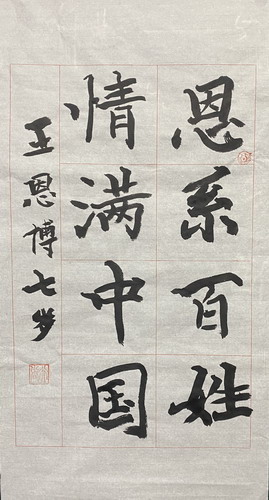 恩系百姓
情满中国
王恩博七岁